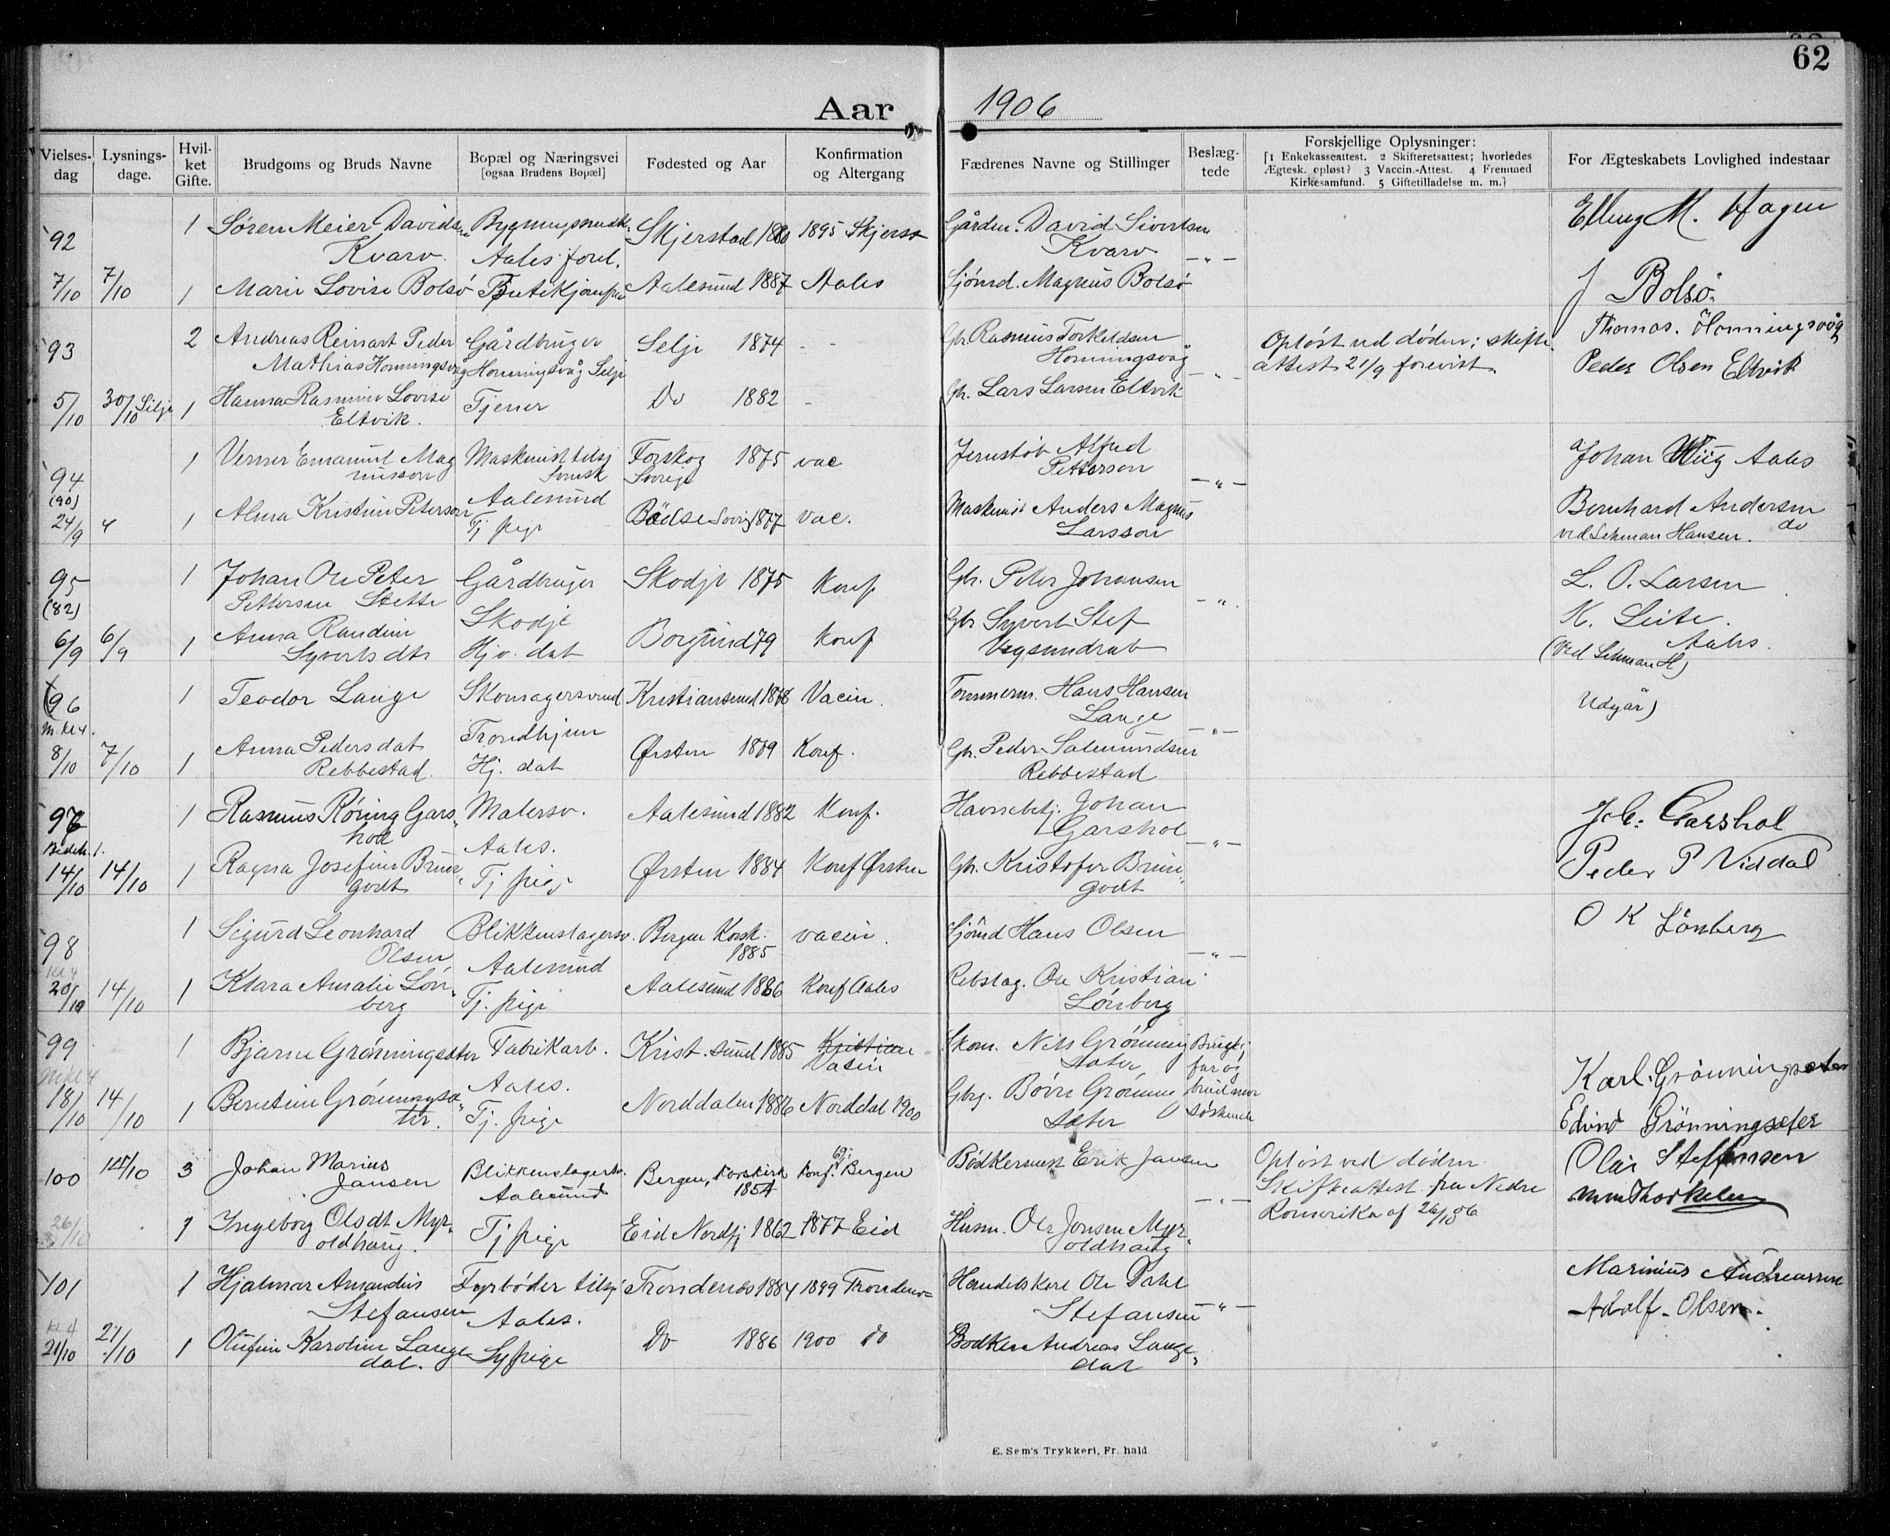 62
Aar 1906
Vielses-dag
Lysnings-dage.
Hvil-ket Gifte.
Brudgoms og Bruds Navne
Bopæl og Næringsvei [ogsaa Brudens Bopæl]
Fødested og Aar
Konfirmation og Altergang
Fædrenes Navne og Stillinger
Beslæg-tede
Forskjellige Oplysninger: [1 Enkekasseattest. 2 Skifteretsattest; hvorledes Ægtesk. opløst? 3 Vaccin.-Attest. 4 Fremmed Kirkesamfund. 5 Giftetilladelse m. m.]
For Ægteskabets Lovlighed indestaar
92 1 Søren Meier Davidsen Skjerstad 1880 1895 Skjerst Gården. David Sivertsen Elling M. Hagen
Kvarv. Aales. forel. Kvarv -"-
7/10 7/10 1 Marie Lovise Bolsø Aalesund 1887 Aales Sjömd. Magnus Bolsø J Bolsø.
93 2 Andreas Reinart Peder Gårdbruger Selje 1874 - - Gbr. Rasmus Torkildsen Opløst ved døden; skifte Thomas. Honningsvåg
Mathias Honningsvåg Honningsvåg Selje Honningsvåg -"- attest 21/9 forevist. Peder Olsen Eltvik
5/10 30/10 Selje 1 Hanna Rasmine Lovise Tjener Do 1882 - Gbr. Lars Larsen Eltvik
Eltvik.
94 1 Verner Emanuel Mag Maskinist tilsj Forskog 1875 vac Jernstöb Alfred Johan Wiig Aales
nusson Svensk Sverige Petterson -"-
(90) 24/9 4 1 Alma Kristine Peterson Aalesund 1877 vac. Maskinist Anders Magnus Bernhard Andersen
Tj pige Larsson ved Lehman Hansen. do
95 1 Johan Ole Peter Gårdbruger Skodje 1875 Konf Gbr. Peter Johansen L. O. Larsen
(82) Pettersen Stette Skodje -"- K. Leite.
6/9 6/9 1 Anna Randine Borgund 79 Konf Gbr Syvert Stef Aales.
Syvertsdtr Hjv. dat Vegsundrab (Ved Lehman H)
(96 1 Teodor Lange Skomagersvend Kristiansund 1878 Vacin. Tømmerm. Hans Hansen Udgår)
m. kl 4. Trondhjem Lange -"-
8/10 7/10 1 Anna Pedersdat Ørsten 1879 Konf. Gbr. Peder Salemundsen
Rebbestad. Hj. dat Rebbestad
97 1 Rasmus Røring Gars- Malersv. Aalesund 1882 Konf. Havnebetj. Johan Joh. Garshol
Bedeh. 1. hol Aales. Garshol -"-
14/10 14/10 1 Ragna Josefine Brun- Tj pige Ørsten 1884 Konf Ørsten Gbr. Kristofer Brun- Peder P Viddal
godt godt
98 1 Sigurd Leonhard Blikkenslagersv. Bergen Korsk. vacin. Sjömd Hans Olsen O K Lönberg
Olsen Aalesund 1885 -"-
kl 4 20/10 14/10 1 Klara Amalie Løn- Tj. pige Aalesund 1886 Konf Aales Rebslag. Ole Kristian
berg Lönberg
99 1 Bjarne Grønningsæter Fabrikarb. Krist. sund 1885 Vacin Skom. Nils Grønning Brudg. Karl. Grønningsæter
Aales. sæter far og
18/10 14/10 1 Berntine Grønningsæ- Tj. pige Norddalen 1886 Norddal 1900 Gbrg. Grönning brudsmor
ter. sæter søskende Edvind Grönningseter
100 14/10 3 Johan Marius Blikkenslagersv. Bergen, Korskirk Konf. 69 Bergen Bödkermest Erik Jansen Opløst ved døden Olai Steffensen
Jansen Aalesund 1854 -"- Skifteattest fra Nedre
26/10 1 Ingeborg Olsdt Myr- Tj pige Eid Nordfj 1862 1877 Eid Husm. Ole Jonsen Myr- Romerike af 26/9 06
oldhaug. oldhaug
101 1 Hjalmar Amandus Fyrbøder tilsj Trondenes 1884 1899 Trondenes Handelskarl Ole Dahl Marinius Andreassen
Stefansen Aales. Stefansen -"- Adolf Olsen.
kl 4 21/10 21/10 1 Olufine Karoline Lange- Sypige Do 1886 1900 do Bødker Andreas Lange-
dal. dal
E. Sem's Trykkeri, Fr. hald